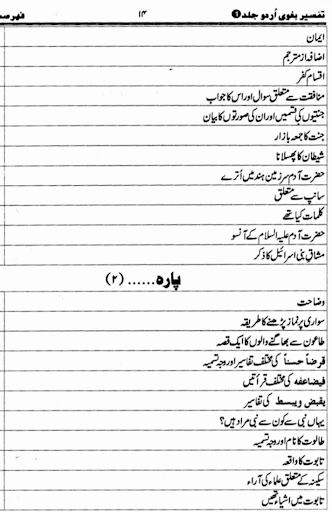 تفسیر بغوی اُردو جلد ۱ ۱۴ فہرست
ایمان
اضافہ از مترجم
اقسام کفر
منافقت سے متعلق سوال اور اس کا جواب
جنتیوں کی قسمیں اور ان کی صورتوں کا بیان
جنت کا جمعہ بازار
شیطان کا پھسلانا
حضرت آدم سرزمین ہند میں اُترے
سانپ سے متعلق
کلمات کیا تھے
حضرت آدم علیہ السلام کے آنسو
مشاق بنی اسرائیل کا ذکر
پارہ...... (۲)
وضاحت
سواری پر نماز پڑھنے کا طریقہ
طاعون سے بھاگنے والوں کا ایک قصہ
قرضاً حسناً کی مختلف تفاسیر اور وجہ تسمیہ
فیضاعفه کی مختلف قرأتیں
یقبض ویبسط کی تفاسیر
یہاں نبی سے کون سے نبی مراد ہیں؟
طالوت کا نام اور وجہ تسمیہ
تابوت کا واقعہ
سکینہ کے متعلق علماء کی آراء
تابوت میں اشیاء تھیں